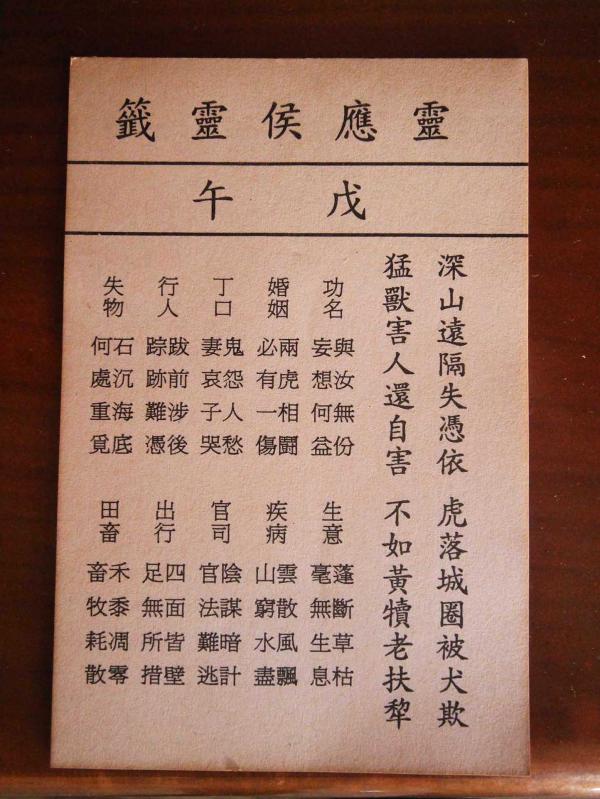 靈應侯靈籤
戊午
深山遠隔失憑依 虎落城圈被犬欺
猛獸害人還自害 不如黃犢老扶犂
功名
與汝無份
妄想何益
婚姻
兩虎相鬪
必有一傷
丁口
鬼怨人愁
妻哀子哭
行人
跋前涉後
踪跡難憑
失物
石沉海底
何處重覓
生意
蓬斷草枯
毫無生息
疾病
雲散風飄
山窮水盡
官司
陰謀暗計
官法難逃
出行
四面皆壁
足無所措
田畜
禾黍凋零
畜牧耗散